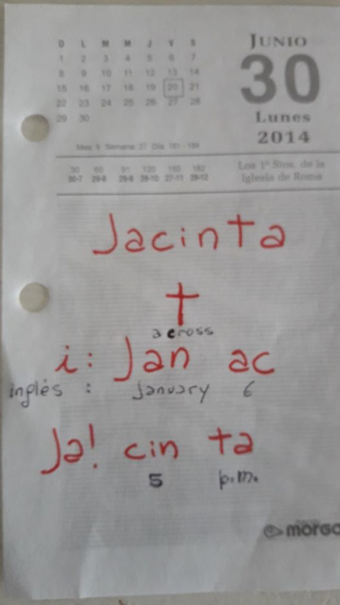 D L M M J V S
1 2 3 4 5 6 7
8 9 10 11 12 13 14
15 16 17 18 19 20 21
22 23 24 25 26 27 28
29 30
Mes: 6 Semana: 27 Día: 181 - 184
JUNIO
30
Lunes
2014
Los 1º Stos. de la
Iglesia de Roma
Jacinta
a cross
i: Jan ac
inglés : january 6
Ja! cin ta
5 p.m.